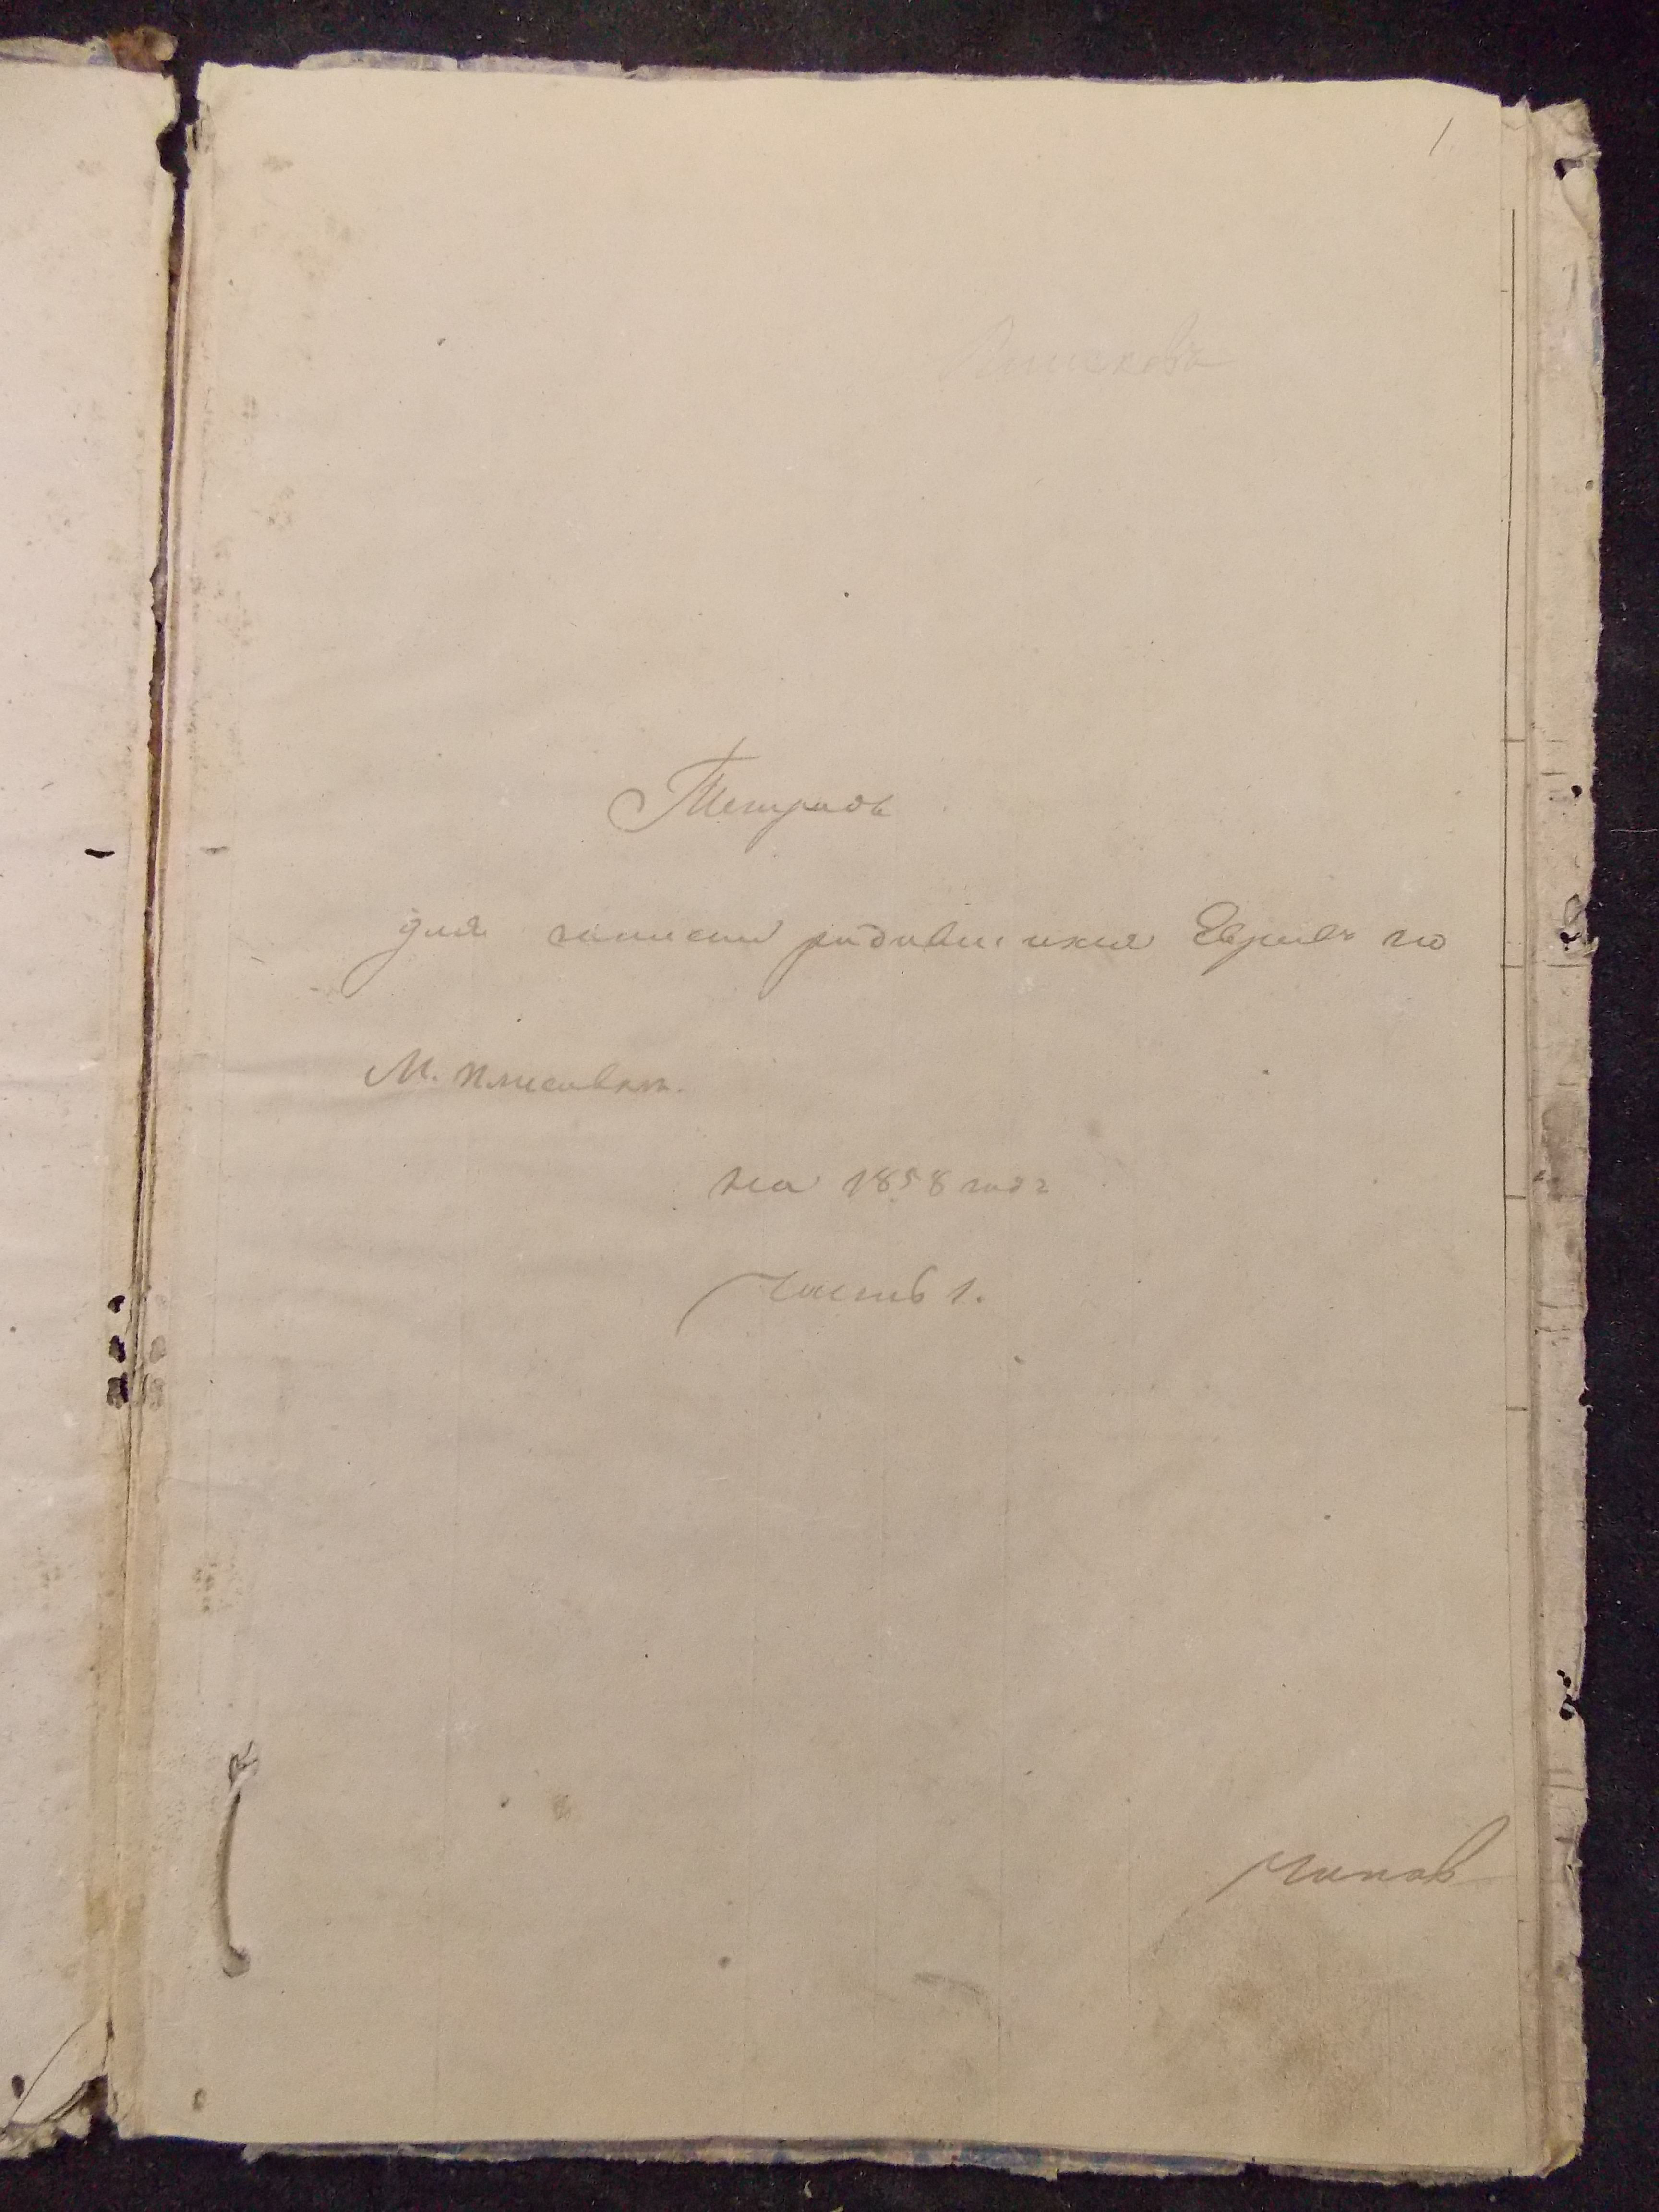 1
Тетрадь
для записи родившихся Евреевъ по
М. Плисковъ.
на 1858 годъ
Часть 1.